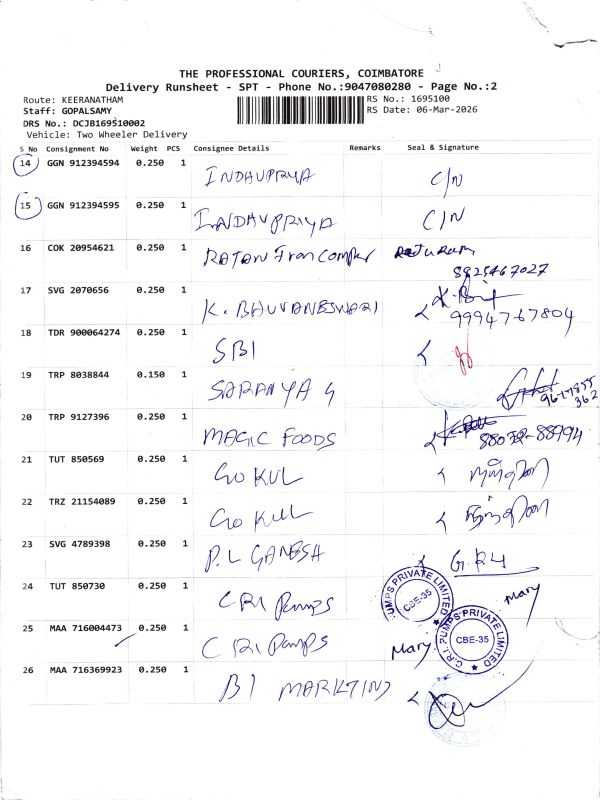 THE PROFESSIONAL COURIERS, COIMBATORE
Delivery Runsheet - SPT - Phone No.:9047080280 - Page No.:2
Route: KEERANATHAM
RS No.: 1695100
Staff: GOPALSAMY
RS Date: 06-Mar-2026
DRS No.: DCJB169510002
Vehicle: Two Wheeler Delivery
S No Consignment No Weight PCS Consignee Details Remarks Seal & Signature
14 GGN 912394594 0.250 1 INDHUPRIYA C/N
15 GGN 912394595 0.250 1 INDHUPRIYA C/N
16 COK 20954621 0.250 1 RATAN
8825467027
17 SVG 2070656 0.250 1 K. BHUVANESWARI
9994767804
18 TDR 900064274 0.250 1 SBI
19 TRP 8038844 0.150 1 SARANYA G
20 TRP 9127396 0.250 1 MAGIC FOODS
21 TUT 850569 0.250 1 GOKUL
22 TRZ 21154089 0.250 1 GOKUL
23 SVG 4789398 0.250 1 P. L GANESH
24 TUT 850730 0.250 1 CRI Pumps
PUMPS PRIVATE LIMITED
CBE-35
Mary
25 MAA 716004473 0.250 1 CRI Pumps
Mary
C.R.I. PUMPS PRIVATE LIMITED
CBE-35
26 MAA 716369923 0.250 1 BI MARKTING